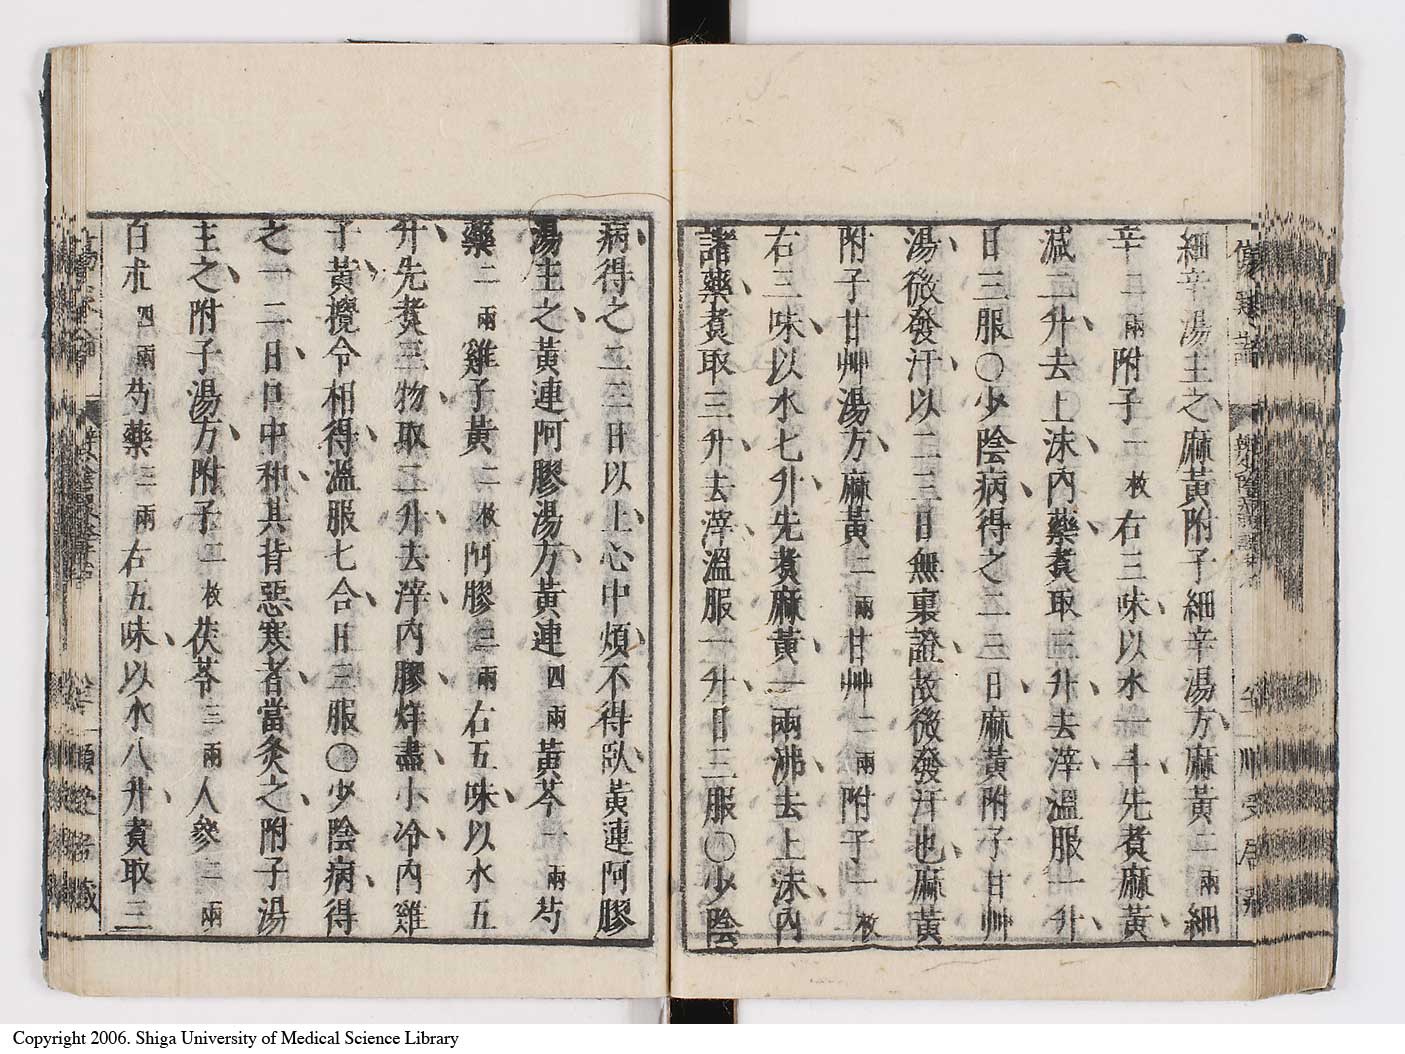 細辛湯主之麻黃附子細辛湯方麻黃二兩細
辛二兩附子一枚右三味以水一斗先煮麻黃
減二升去上沫內藥煮取三升去滓溫服一升
日三服○少陰病得之二三日麻黃附子甘艸
湯微發汗以二三日無裏證故微發汗也麻黃
附子甘艸湯方麻黃二兩甘艸二兩附子一枚
右三味以水七升先煮麻黃一兩沸去上沫內
諸藥煮取三升去滓溫服一升日三服○少陰
病得之二三日以上心中煩不得臥黃連阿膠
湯主之黃連阿膠湯方黃連四兩黃芩一兩芍
藥二兩雞子黃二枚阿膠三兩右五味以水五
升先煮三物取二升去滓內膠烊盡小冷內雞
子黃攪令相得溫服七合日三服○少陰病得
之一二日口中和其背惡寒者當灸之附子湯
主之附子湯方附子二枚茯苓三兩人參二兩
白朮四兩芍藥三兩右五味以水八升煮取三
Copyright 2006. Shiga University of Medical Science Library